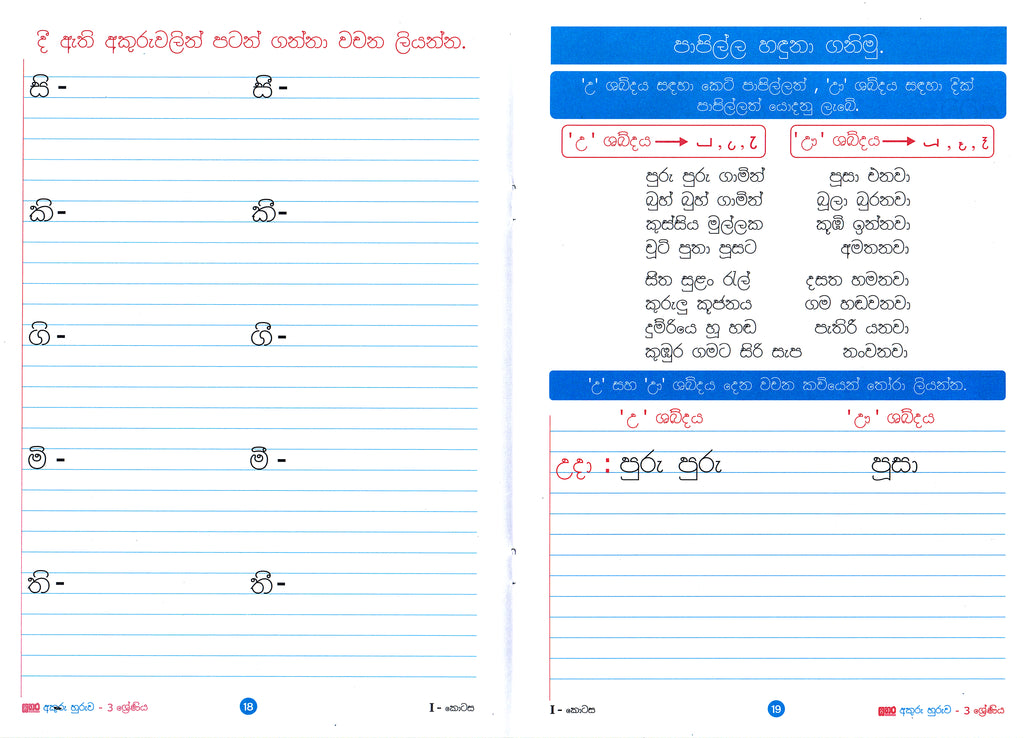 දී ඇති අකුරුවලින් පටන් ගන්නා වචන ලියන්න.
සි - සී -
කි - කී -
ගි - ගී -
මි - මී -
ති - තී -
අකුරු හුරුව - 3 ශ්‍රේණිය
18
I - කොටස
පාපිල්ල හඳුනා ගනිමු.
'උ' ශබ්දය සඳහා කෙටි පාපිල්ලත් , 'ඌ' ශබ්දය සඳහා දික්
පාපිල්ලත් යොදනු ලැබේ.
'උ' ශබ්දය
'ඌ' ශබ්දය
පුරු පුරු ගාමින් පූසා එනවා
බුහ් බුහ් ගාමින් බූලා බුරනවා
කුස්සිය මුල්ලක කූඹි ඉන්නවා
චූටි පුතා පූසට අමතනවා
සීත සුළං රැල් දසත හමනවා
කුරුලු කූජනය ගම හඬවනවා
දුම්රියෙ හූ හඬ පැතිරී යනවා
කුඹුර ගමට සිරි සැප නංවනවා
'උ' සහ 'ඌ' ශබ්දය දෙන වචන කවියෙන් තෝරා ලියන්න.
'උ' ශබ්දය 'ඌ' ශබ්දය
උදා : පුරු පුරු පූසා
I - කොටස
19
අකුරු හුරුව - 3 ශ්‍රේණිය